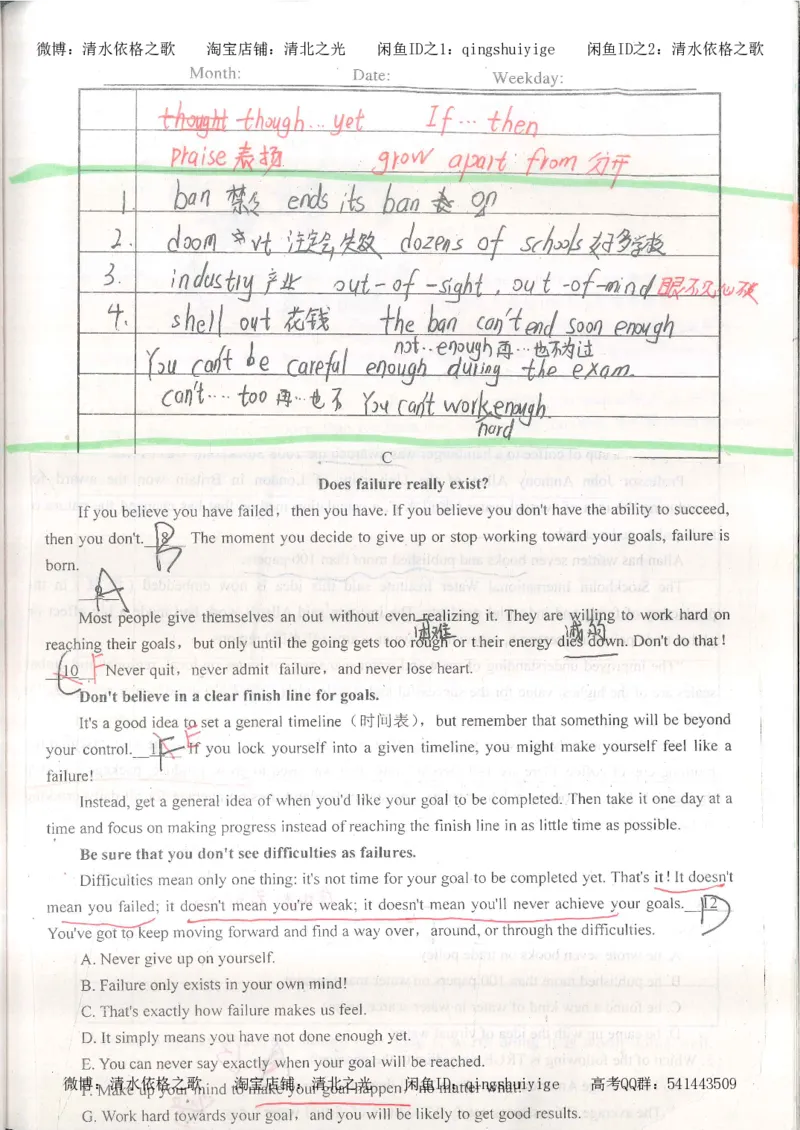 微博：清水依格之歌 淘宝店铺：清北之光 闲鱼ID之1：qingshuiyige 闲鱼ID之2：清水依格之歌
Month: Date: Weekday:
thought though... yet If ... then
praise 表扬 grow apart from 分开
1. ban 禁令 ends its ban on
2. doom vt 注定会失败 dozens of schools 好多学校
3. industry 产业 out-of-sight, out-of-mind 眼不见心不烦
4. shell out 花钱 the ban can't end soon enough
not...enough 再...也不为过
You can't be careful enough during the exam.
can't.... too 再...也不 You can't work enough.
hard
C
Does failure really exist?
If you believe you have failed, then you have. If you believe you don't have the ability to succeed,
then you don't. 8 B The moment you decide to give up or stop working toward your goals, failure is
born.
A
Most people give themselves an out without even realizing it. They are willing to work hard on
困难 减弱
reaching their goals, but only until the going gets too rough or their energy dies down. Don't do that!
10 F Never quit, never admit failure, and never lose heart.
Don't believe in a clear finish line for goals.
It's a good idea to set a general timeline（时间表）, but remember that something will be beyond
your control. 11 E If you lock yourself into a given timeline, you might make yourself feel like a
failure!
Instead, get a general idea of when you'd like your goal to be completed. Then take it one day at a
time and focus on making progress instead of reaching the finish line in as little time as possible.
Be sure that you don't see difficulties as failures.
Difficulties mean only one thing: it's not time for your goal to be completed yet. That's it! It doesn't
mean you failed; it doesn't mean you're weak; it doesn't mean you'll never achieve your goals. 12 D
You've got to keep moving forward and find a way over, around, or through the difficulties.
A. Never give up on yourself.
B. Failure only exists in your own mind!
C. That's exactly how failure makes us feel.
D. It simply means you have not done enough yet.
E. You can never say exactly when your goal will be reached.
F. Make up your mind to make your goal happen, no matter what.
微博：清水依格之歌 淘宝店铺：清北之光 闲鱼ID：qingshuiyige 高考QQ群：541443509
G. Work hard towards your goal, and you will be likely to get good results.